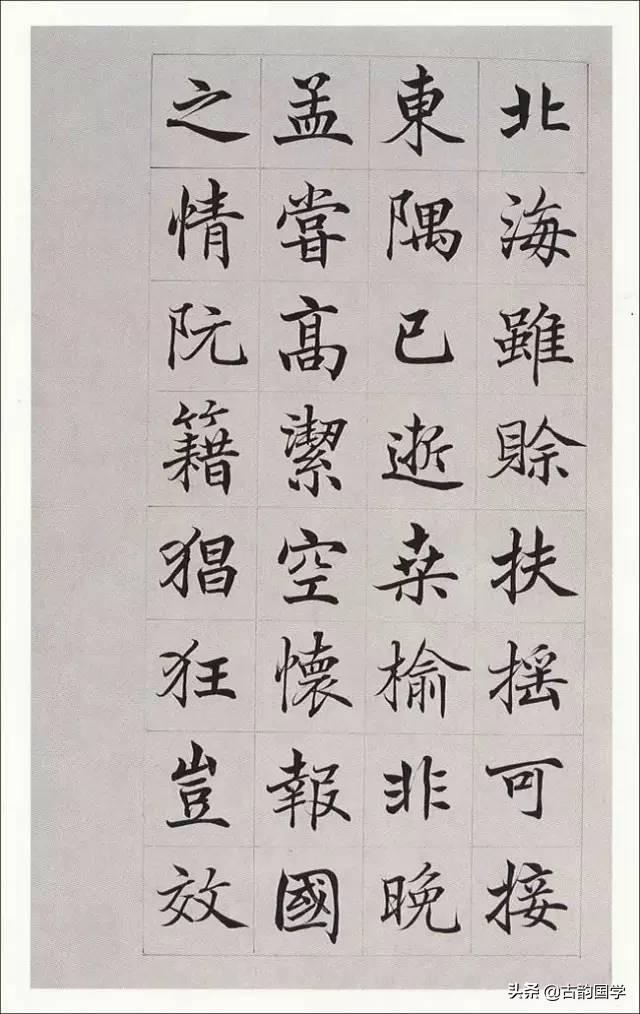 北海雖賒扶摇可接
東隅已逝桒榆非晚
孟嘗高潔空懷報國
之情阮籍猖狂豈效
头条 @古韵国学